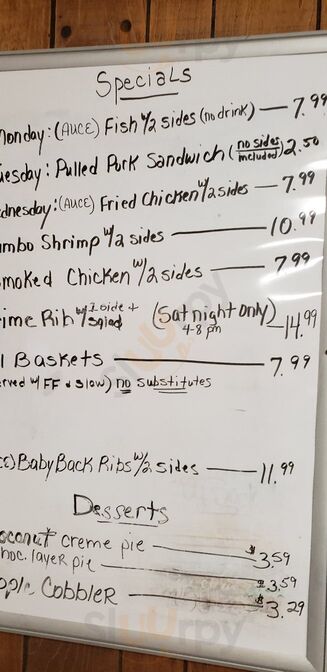 Specials
onday: (AUCE) Fish w/2 sides (no drink) — 7.99
uesday: Pulled Pork Sandwich (no sides included) 2.50
dnesday: (AUCE) Fried Chicken w/2 sides — 7.99
mbo Shrimp w/2 sides — 10.99
moked Chicken w/2 sides — 7.99
ime Rib w/1 side + salad (Sat night only) — 14.99
4-8 pm
l Baskets — 7.99
rved w/ FF & slaw) no substitutes
CE) Baby Back Ribs w/2 sides — 11.99
Desserts
oconut creme pie — $3.59
hoc. layer pie — $3.59
pple Cobbler — $3.29
Sluurpy
sluurpy